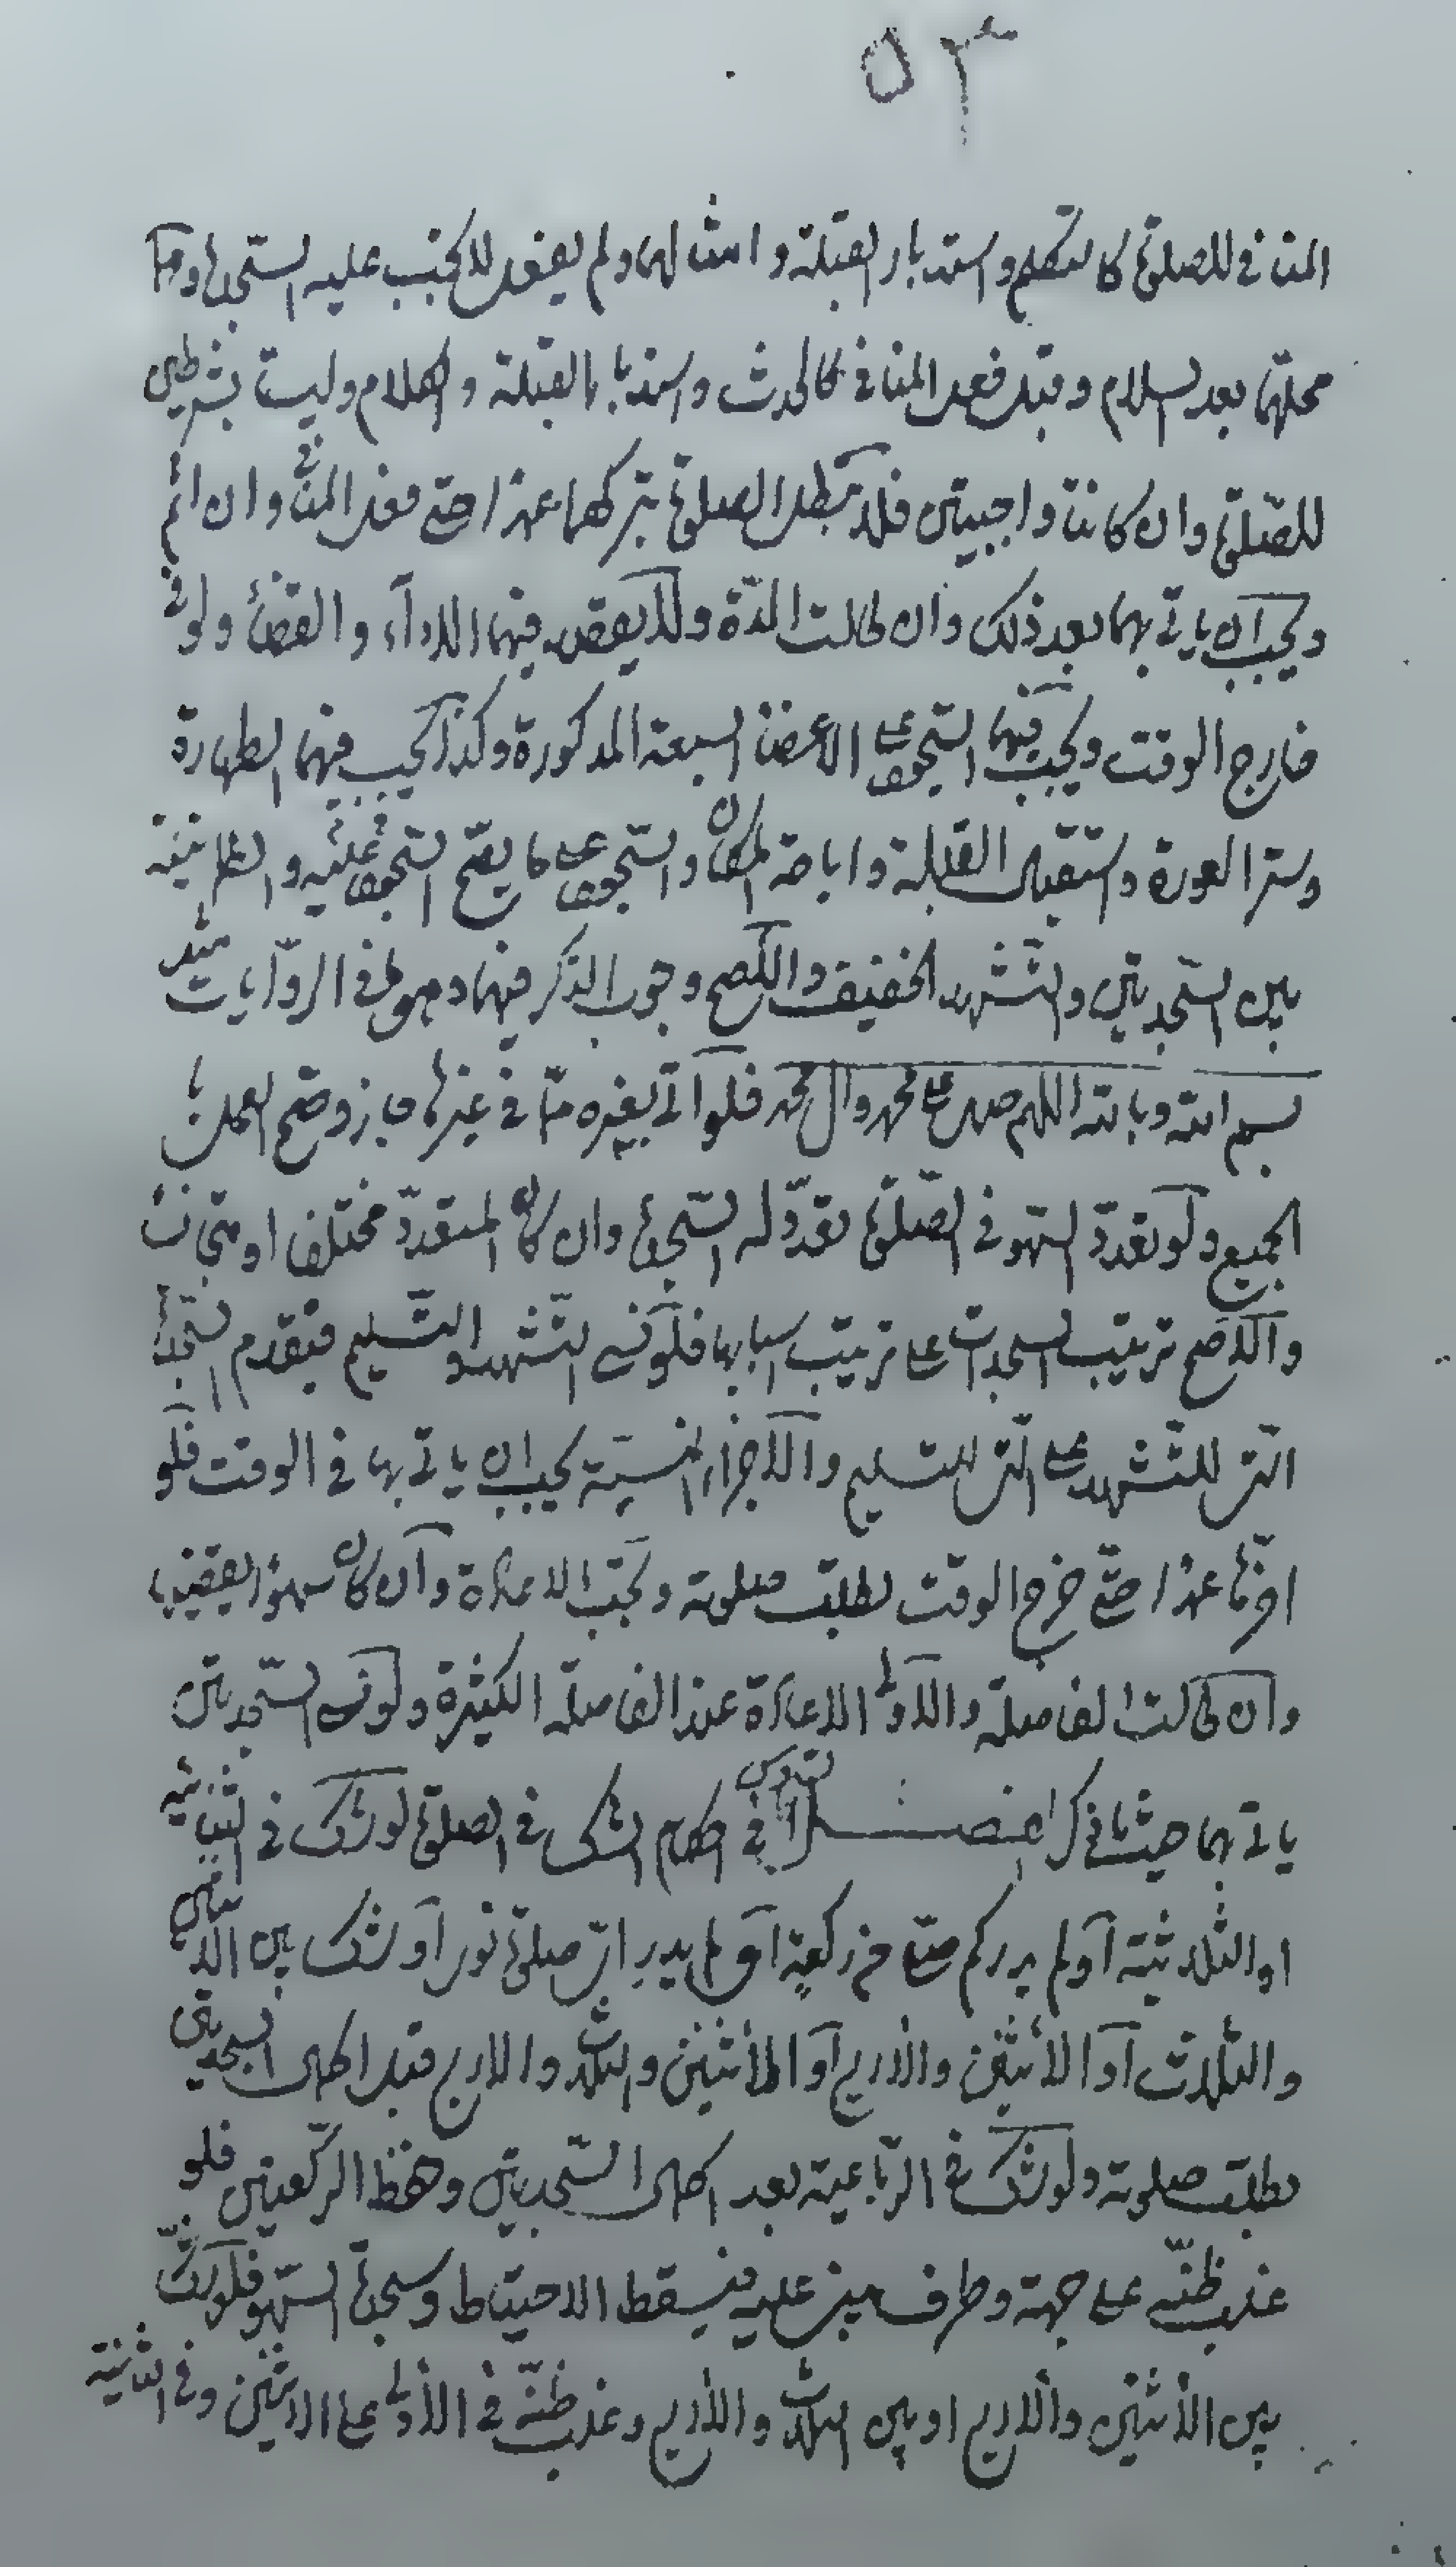 ٥٣
المنافي للصلوة كالتكلم واستدبار القبلة وامثالهما ولم يفعل لا يجب عليه السجدة وهما
محلهما بعد السلام وقبل فعل المنافي كالحدث واستدبار القبلة والكلام وليستا بشرطين
للصلوة وان كانتا واجبتين فلا تبطل الصلوة بتركهما عمدا حتى فعل المنافي وان اثم
ويجب ان ياتي بهما بعد ذلك وان طالت المدة ولا يقصد فيهما الاداء والقضاء ولو في
خارج الوقت ويجب فيهما السجود على الاعضاء السبعة المذكورة وكذا يجب فيهما الطهارة
وستر العورة واستقبال القبلة واباحة المكان والسجود على ما يصح السجود عليه والطمانينة
بين السجدتين والتشهد الخفيف والاصح وجوب الذكر فيهما وهو في الروايات مثل
بسم الله وبالله اللهم صل على محمد وال محمد فلو اتى بغيره مما في غيرها جاز وصح العمل با
الجميع ولو تعدد السهو في الصلوة تعدد له السجدة وان كان المتعدد مختلفا او متجانسا
والاصح ترتيب السجدات على ترتيب اسبابها فلو نسى التشهد والتسليم فيقدم السجدة
التي للتشهد على التي للتسليم والاجزاء المنسية يجب ان ياتي بها في الوقت فلو
اخرها عمدا حتى خرج الوقت بطلت صلوته وتجب الاعادة وان كان سهوا يقضيها
وان طالت الفاصلة والاولى الاعادة عند الفاصلة الكثيرة ولو نسى السجدتين
ياتي بهما حيث ما ذكر افصل في احكام الشك في الصلوة لو شك في الثنائية
او الثلاثية او لم يدر كم صلى من ركعة او لم يدر اي صلوة نوى او شك بين الاثنتين
والثلاث او الاثنين والاربع او الاثنين والثلاث والاربع قبل اكمال السجدتين
بطلت صلوته ولو شك في الرباعية بعد اكمال السجدتين وحفظ الركعتين فلو
غلب ظنه على جهة وطرف يبني عليه فيسقط الاحتياط وسجدة السهو فلو شك
بين الاثنين والاربع او بين الثلاث والاربع وغلب ظنه في الاولى على الاثنين وفي الثانية